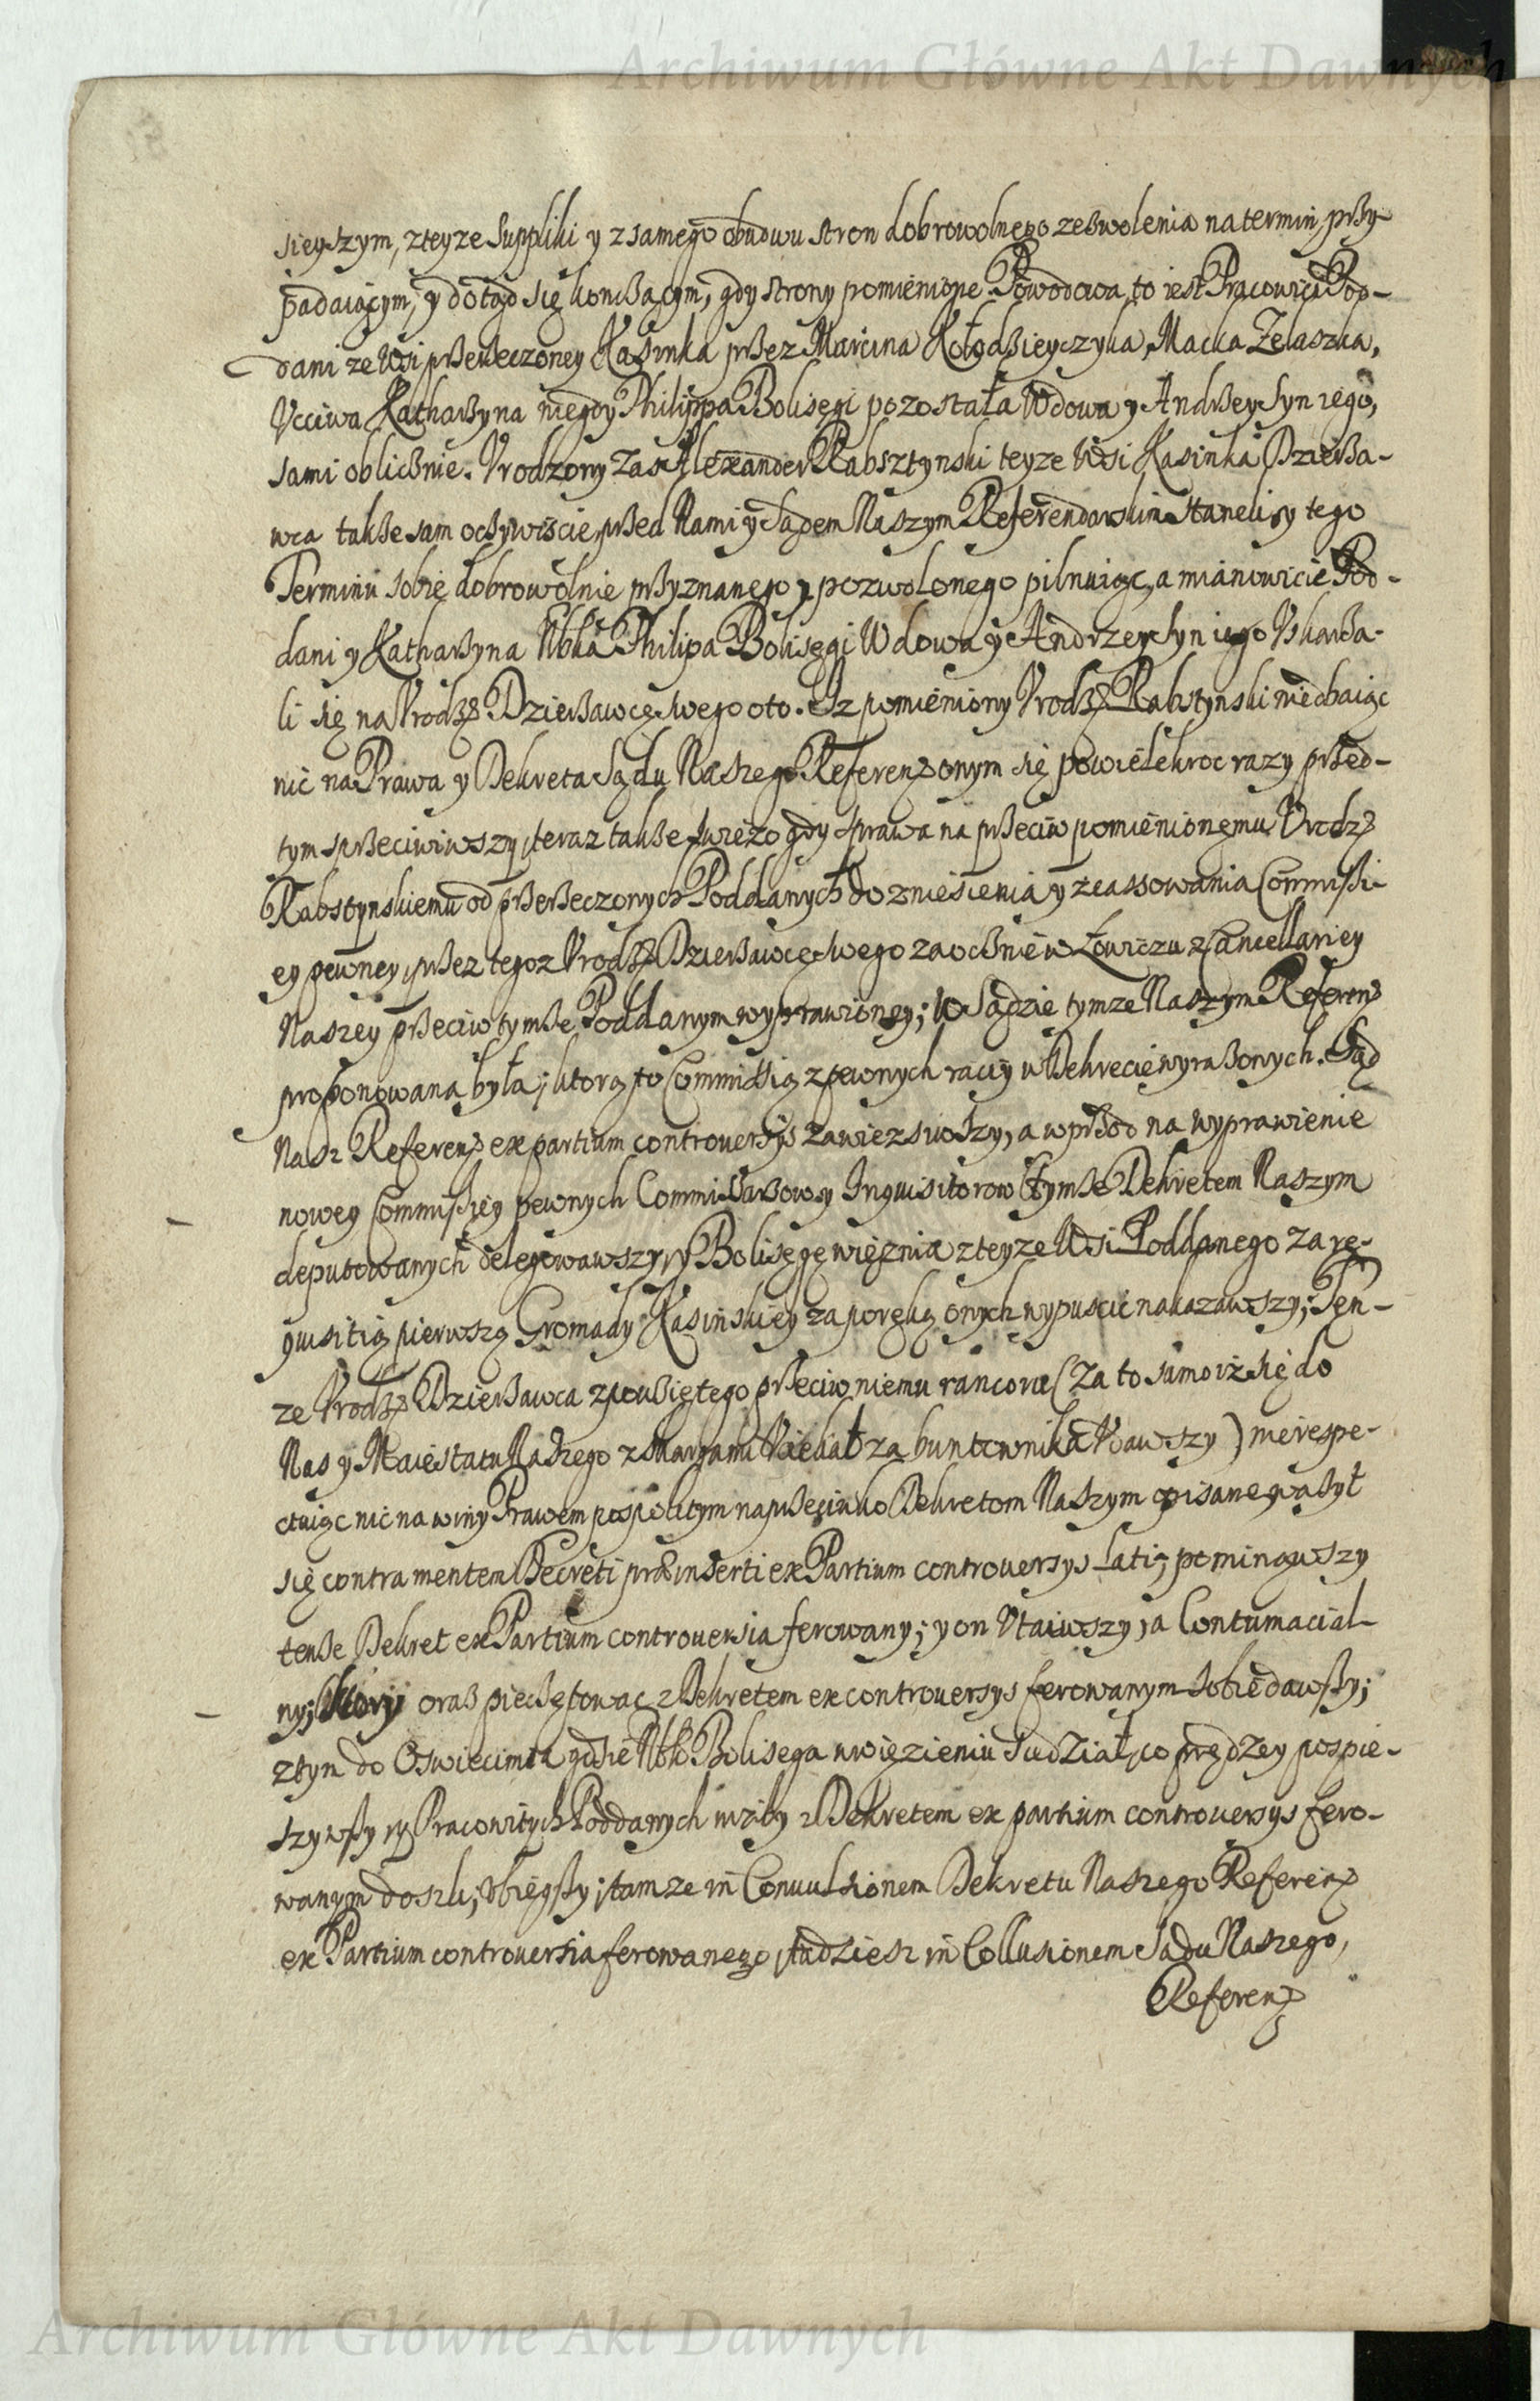 Archiwum Główne Akt Dawnych
sieyszym, zteyze Suppliki y z samego obudwu stron dobrowolnego zezwolenia na termin, przy-
padaiącym, y dotąd się konczącym, gdy strony pomienione Powodowa, to iest Pracowici Pod-
dani ze Wsi przerzeczoney Kasinka przez Marcina Kołodzieyczyka, Macka Zelaszka,
Vcciwa Katharzyna niegdy Philippa Bolisęgi pozostała Wdowa y Andrzey Syn iego,
sami oblicznie. Vrodzony zas Alexander Rabsztynski teyze Wsi Kasinka Dzierza-
wca takze sam oczywiscie, przed Nami y Sądem Naszym Referendarskim stanęli, y tego
Terminu sobie dobrowolnie przyznanego y pozwolonego pilnuiąc, a mianowicie Pod-
dani y Katharzyna Vbka Philipa Bolisęgi Wdowa y Andrzey Syn iego Vskarza-
li się na Vrodz Dzierzawcę swego oto. Iz pomieniony Vrodz Rabstynski niedbaiąc
nic na Prawa y Dekreta Sądu Naszego Referen onym się powielekroc razy przed-
tym sprzeciwiwszy, teraz takze swiezo gdy sprawa na przeciw pomienionemu Vrodz
Rabstynskiemu od przerzeczonych Poddanych do zniesienia y zcassowania Commissi-
ey pewney, przez tegoz Vrodz Dzierzawcę swego zaocznie w Łowiczu z Cancellariey
Naszey przeciw tymze Poddanym wyprawioney; w Sądzie tymze Naszym Referen
proponowana była; ktorą to Commissią z pewnych raciy w Dekrecie wyrazonych. Sąd
Nasz Referen ex partium controuersys zawiezsiwszy, a wprzod na wyprawienie
nowey Commissiey pewnych Commissarzow y Inquisitorow tymze Dekretem Naszym
deputowanych delegowawszy, y Bolisęgę więznia z teyze Wsi Poddanego za re-
quisitią pierwszą Gromady Kasinskiey za poręką onych wypuscic nakazawszy; Ten-
ze Vrodz Dzierzawca z powziętego przeciw niemu rancoru (za to samo iz się do
Nas y Maiestatu Naszego z skargami Vciekał za buntownika Vdawszy) nierespe-
ctuiąc nic na winy Prawem pospolitym naprzeciwko Dekretom Naszym opisane, wazył
się contra mentem Decreti praeinserti ex Partium controuersys Lati, pominąwszy
tenze Dekret ex Partium controuersia ferowany; y on Vtaiwszy, a Contumacial-
ny, ktory oraz pieczętowac z Dekretem ex controuersys ferowanym sobie dawszy;
z tym do Oswiecimia gdzie Bolisęga w więzieniu siedział, co prędzey pospie-
szywszy y Pracowitych Poddanych nizliby z Dekretem ex partium controuersys fero-
wanym doszli, Vbiegszy; tamze in Conuulsionem Dekretu Naszego Referen
ex Partium controuersia ferowanego, tudziesz in Collusionem Sądu Naszego,
Referen
Archiwum Główne Akt Dawnych